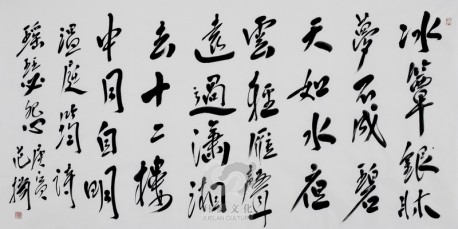 冰簟銀牀
夢不成碧
天如水夜
雲輕雁聲
遠過瀟湘
去十二樓
中月自明
溫庭筠詩
瑤瑟怨 庚寅
文化